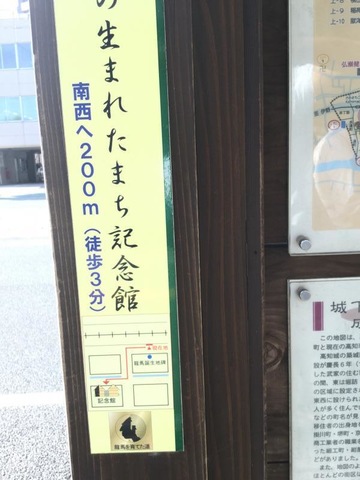 の生まれたまち記念館
南西へ200m（徒歩3分）
現在地
龍馬誕生地碑
記念館
龍馬を育てた道
上-9
上-10
城下
この地図は、
町と現在の高知
高知城の築城
設が慶長6年（
した武家の住む
の間、東は堀詰
の区域に設定さ
東西に設けられ
人が多く住んで
などの町名が見
移住者の出身地
掛川町・堺町・
商工業者の職業
った細工町・紺
どがありました。
また、地図の
ほとんどの街区